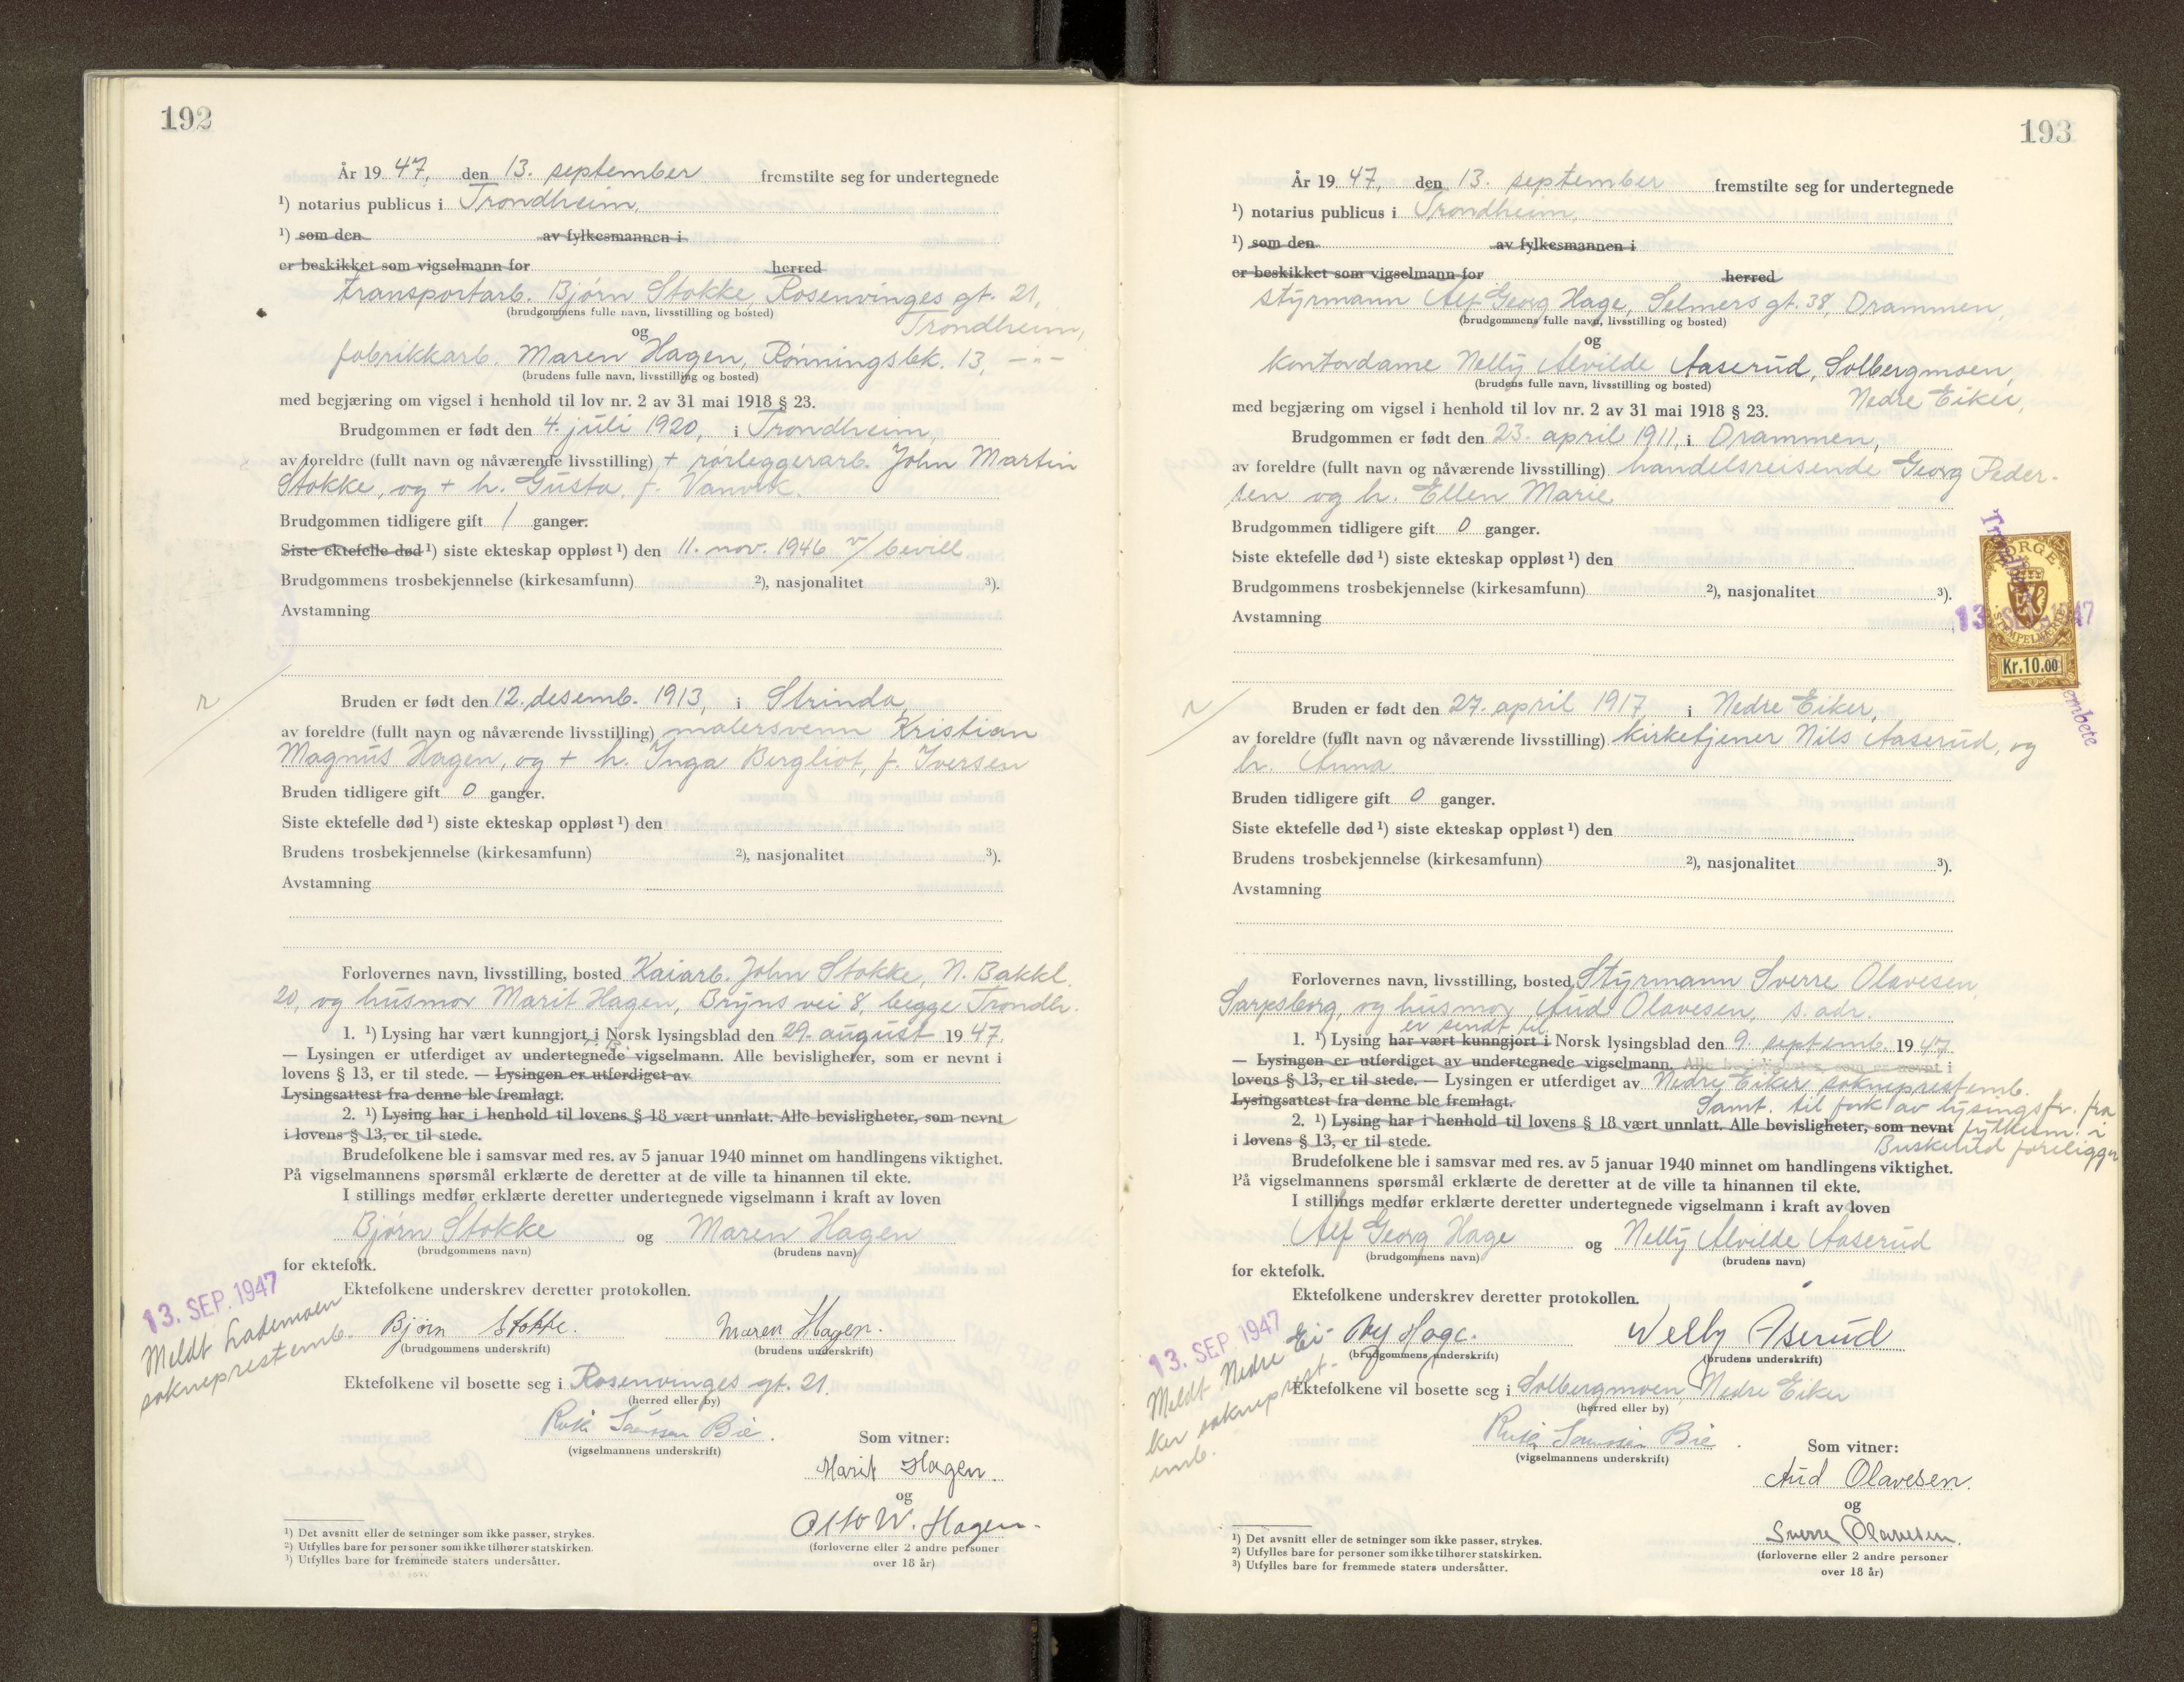 192
År 19 47, den 13. september fremstilte seg for undertegnede
¹) notarius publicus i Trondheim,
¹) som den av fylkesmannen i
er beskikket som vigselmann for herred
transportarb. Bjørn Stokke, Rosenvinges gt. 21,
(brudgommens fulle navn, livsstilling og bosted)
Trondheim,
og
fabrikkarb. Maren Hagen, Rønningsbk. 13, —"—
(brudens fulle navn, livsstilling og bosted)
med begjæring om vigsel i henhold til lov nr. 2 av 31 mai 1918 § 23.
Brudgommen er født den 4. juli 1920, i Trondheim,
av foreldre (fullt navn og nåværende livsstilling) + rørleggerarb. John Martin
Stokke, og + h. Gusta, f. Vanvik.
Brudgommen tidligere gift 1 ganger.
Siste ektefelle død ¹) siste ekteskap oppløst ¹) den 11. nov. 1946 v/ bevill
Brudgommens trosbekjennelse (kirkesamfunn) ²), nasjonalitet ³).
Avstamning
Bruden er født den 12. desemb. 1913, i Strinda,
av foreldre (fullt navn og nåværende livsstilling) malersvenn Kristian
Magnus Hagen, og + h. Inga Bergliot, f. Iversen
Bruden tidligere gift 0 ganger.
Siste ektefelle død ¹) siste ekteskap oppløst ¹) den
Brudens trosbekjennelse (kirkesamfunn) ²), nasjonalitet ³).
Avstamning
Forlovernes navn, livsstilling, bosted Kaiarb. John Stokke, N. Bakkl.
20, og husmor Marit Hagen, Bryns vei 8, begge Trondh.
1. ¹) Lysing har vært kunngjort i Norsk lysingsblad den 29. august 19 47.
— Lysingen er utferdiget av undertegnede vigselmann. Alle bevisligheter, som er nevnt i
lovens § 13, er til stede. — Lysingen er utferdiget av
Lysingsattest fra denne ble fremlagt.
2. ¹) Lysing har i henhold til lovens § 18 vært unnlatt. Alle bevisligheter, som nevnt
i lovens § 13, er til stede.
Brudefolkene ble i samsvar med res. av 5 januar 1940 minnet om handlingens viktighet.
På vigselmannens spørsmål erklærte de deretter at de ville ta hinannen til ekte.
I stillings medfør erklærte deretter undertegnede vigselmann i kraft av loven
Bjørn Stokke og Maren Hagen
(brudgommens navn) (brudens navn)
for ektefolk.
Ektefolkene underskrev deretter protokollen.
13. SEP. 1947
Meldt Lademoen
sokneprestemb.
Bjørn Stokke. Maren Hagen.
(brudgommens underskrift) (brudens underskrift)
Ektefolkene vil bosette seg i Rosenvinges gt. 21.
(herred eller by)
Bie.
(vigselmannens underskrift)
Som vitner:
Marit Hagen.
og
Otto W. Hagen.
(forloverne eller 2 andre personer
over 18 år)
¹) Det avsnitt eller de setninger som ikke passer, strykes.
²) Utfylles bare for personer som ikke tilhører statskirken.
³) Utfylles bare for fremmede staters undersåtter.
193
År 19 47, den 13. september fremstilte seg for undertegnede
¹) notarius publicus i Trondheim,
¹) som den av fylkesmannen i
er beskikket som vigselmann for herred
styrmann Alf Georg Hage, Selmers gt. 38, Drammen,
(brudgommens fulle navn, livsstilling og bosted)
og
kontordame Nelly Alvilde Aaserud, Solbergmoen,
(brudens fulle navn, livsstilling og bosted)
Nedre Eiker,
med begjæring om vigsel i henhold til lov nr. 2 av 31 mai 1918 § 23.
Brudgommen er født den 23. april 1911, i Drammen,
av foreldre (fullt navn og nåværende livsstilling) handelsreisende Georg Peder-
sen og h. Ellen Marie
Brudgommen tidligere gift 0 ganger.
Siste ektefelle død ¹) siste ekteskap oppløst ¹) den
Brudgommens trosbekjennelse (kirkesamfunn) ²), nasjonalitet ³).
Avstamning
NORGE
STEMPELMERKE
Kr.10.00
13. SEP. 1947
Bruden er født den 27. april 1917 i Nedre Eiker,
av foreldre (fullt navn og nåværende livsstilling) kirketjener Nils Aaserud, og
h. Anna
Bruden tidligere gift 0 ganger.
Siste ektefelle død ¹) siste ekteskap oppløst ¹) den
Brudens trosbekjennelse (kirkesamfunn) ²), nasjonalitet ³).
Avstamning
Forlovernes navn, livsstilling, bosted Styrmann Sverre Olavesen,
Sarpsborg, og husmor Aud Olavesen, s. adr.
er sendt til
1. ¹) Lysing har vært kunngjort i Norsk lysingsblad den 9. septemb. 19 47
— Lysingen er utferdiget av undertegnede vigselmann. Alle bevisligheter, som er nevnt i
lovens § 13, er til stede. — Lysingen er utferdiget av Nedre Eiker sokneprestemb.
Lysingsattest fra denne ble fremlagt. Samt. til fork. av lysingsfr. fra
2. ¹) Lysing har i henhold til lovens § 18 vært unnlatt. Alle bevisligheter, som nevnt fylkesm. i
i lovens § 13, er til stede. Buskerud foreligger
Brudefolkene ble i samsvar med res. av 5 januar 1940 minnet om handlingens viktighet.
På vigselmannens spørsmål erklærte de deretter at de ville ta hinannen til ekte.
I stillings medfør erklærte deretter undertegnede vigselmann i kraft av loven
Alf Georg Hage og Nelly Alvilde Aaserud
(brudgommens navn) (brudens navn)
for ektefolk.
Ektefolkene underskrev deretter protokollen.
13. SEP. 1947
Meldt Nedre Ei-
ker sokneprest-
emb.
Alf Hage. Nelly Åserud
(brudgommens underskrift) (brudens underskrift)
Ektefolkene vil bosette seg i Solbergmoen, Nedre Eiker
(herred eller by)
Bie.
(vigselmannens underskrift)
Som vitner:
Aud Olavesen.
og
Sverre Olavesen.
(forloverne eller 2 andre personer
over 18 år)
¹) Det avsnitt eller de setninger som ikke passer, strykes.
²) Utfylles bare for personer som ikke tilhører statskirken.
³) Utfylles bare for fremmede staters undersåtter.